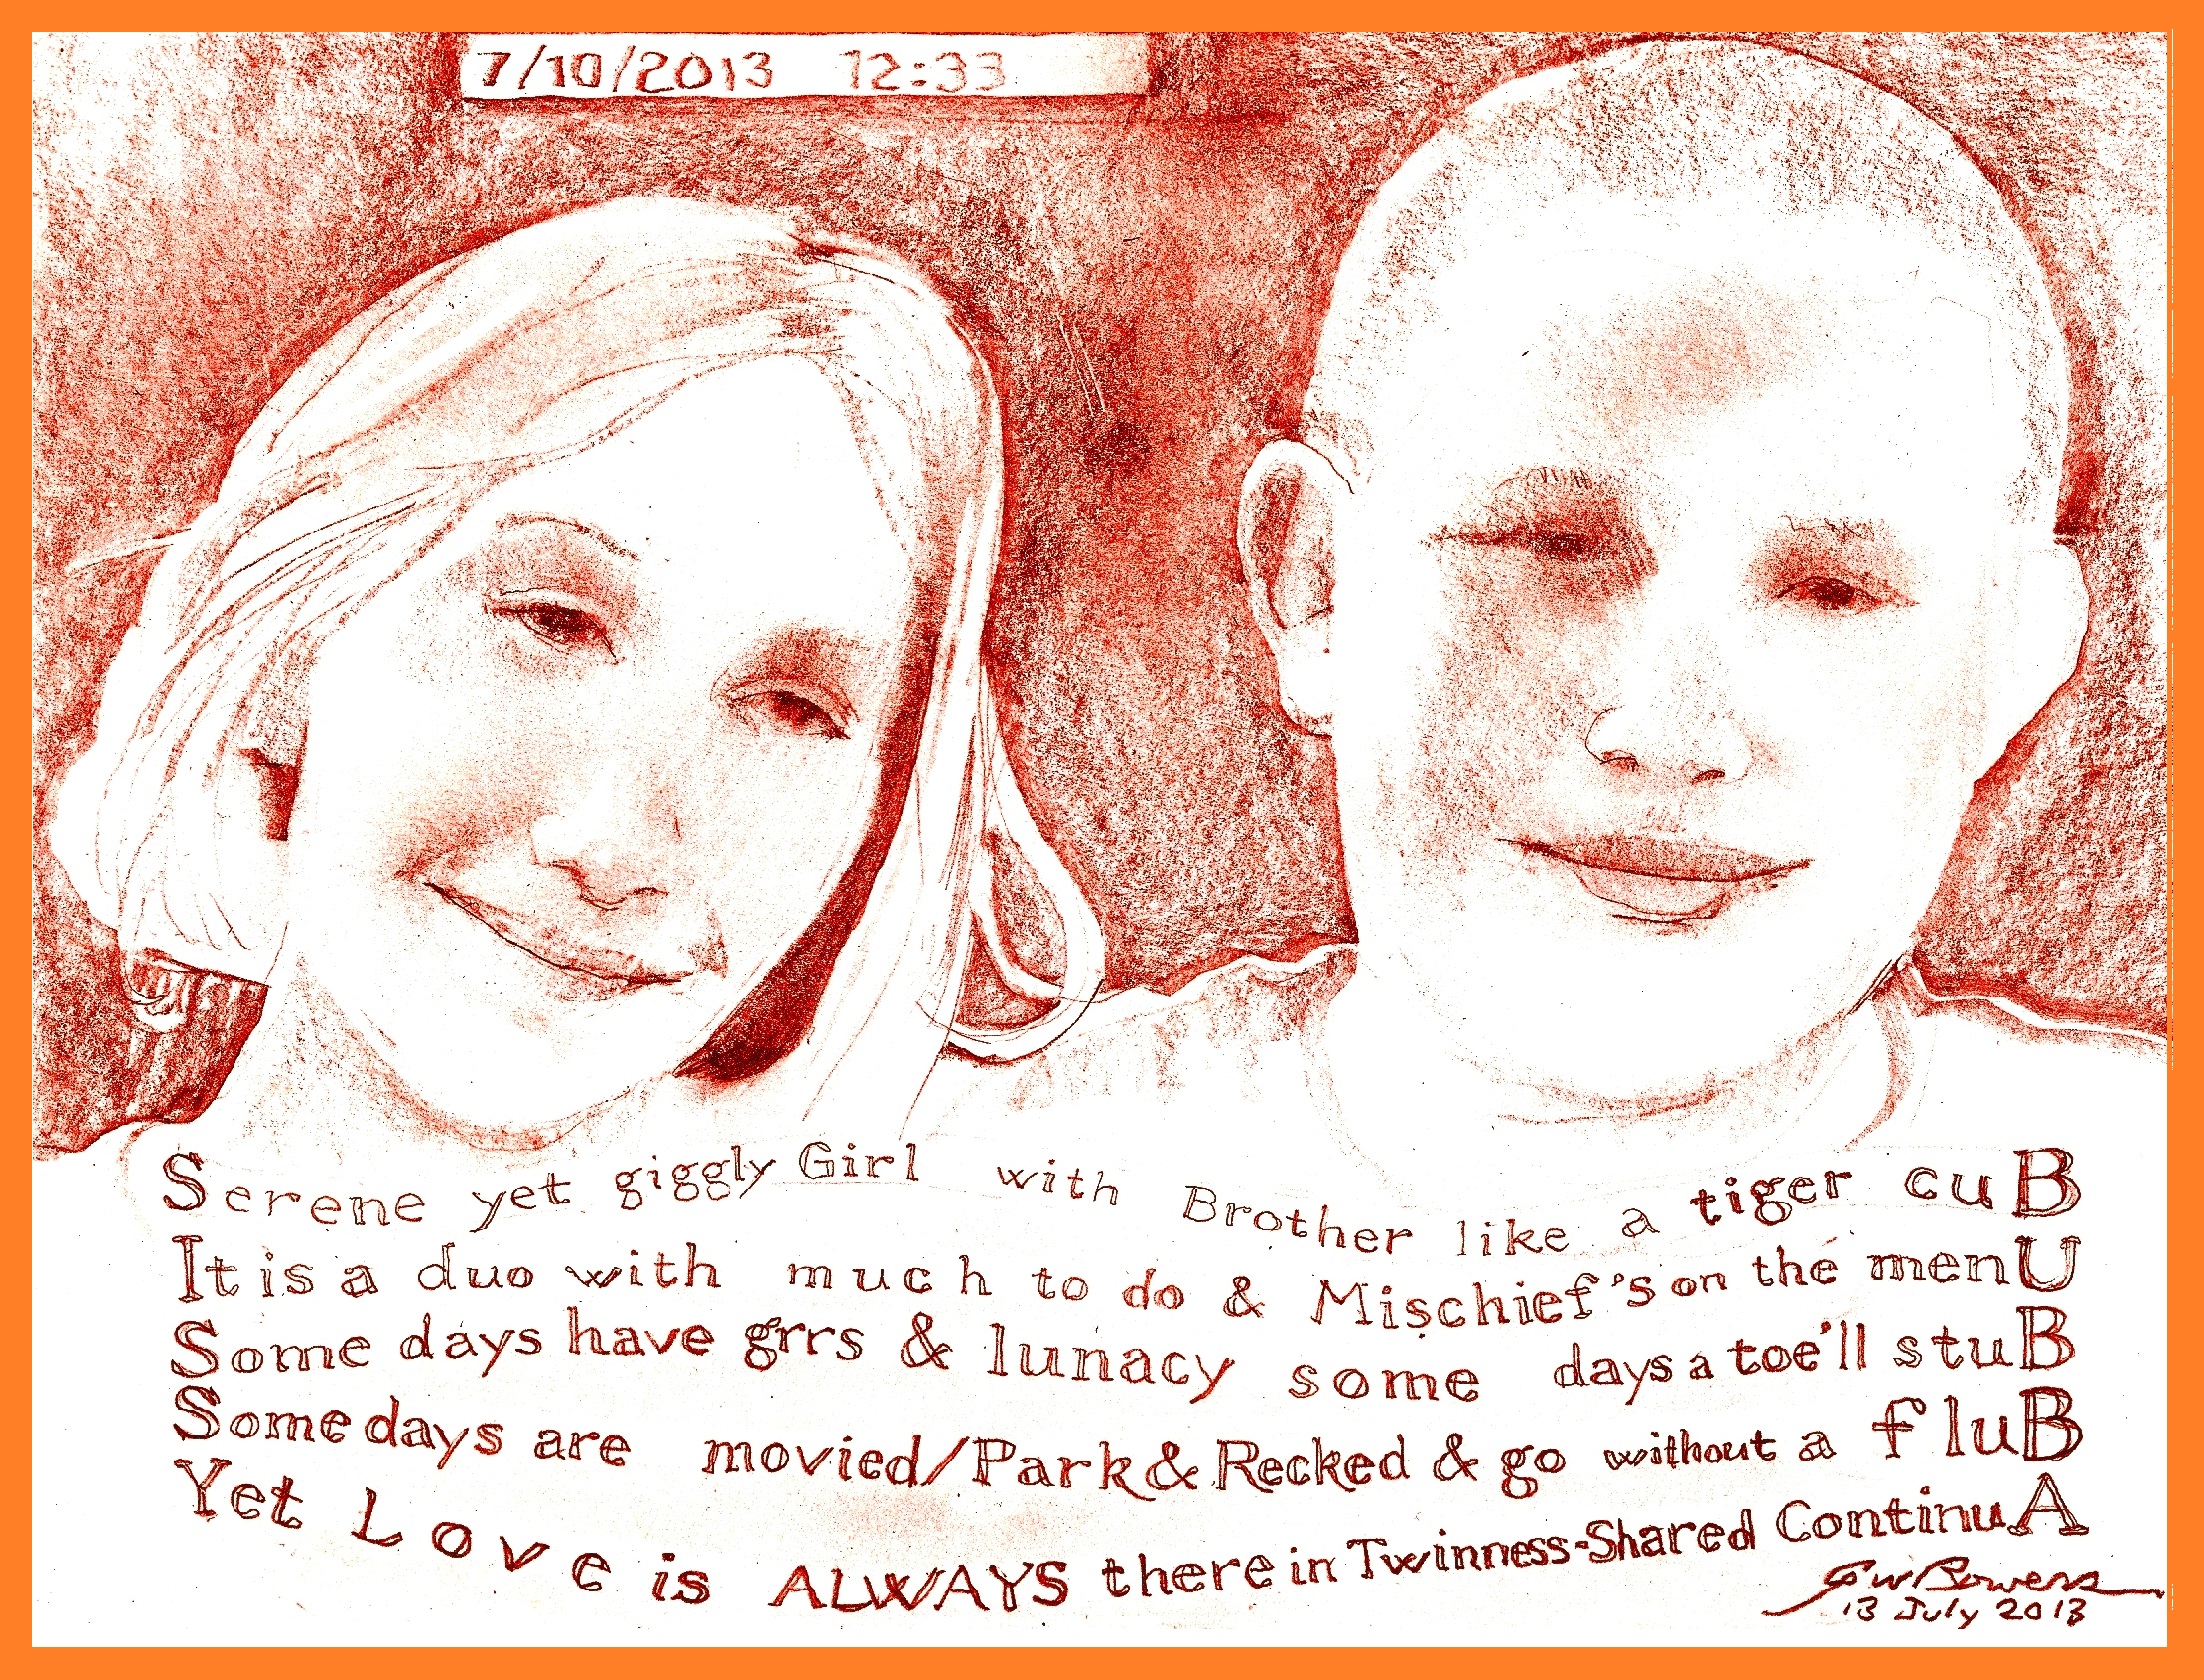 7/10/2013 12:33
Serene yet giggly Girl with Brother like a tiger cuB
It is a duo with much to do & Mischief's on the menU
Some days have grrs & lunacy some days a toe'll stuB
Some days are movied/Park & Recked & go without a fluB
Yet Love is ALWAYS there in Twinness-Shared ContinuA
GW Bowers
13 July 2013